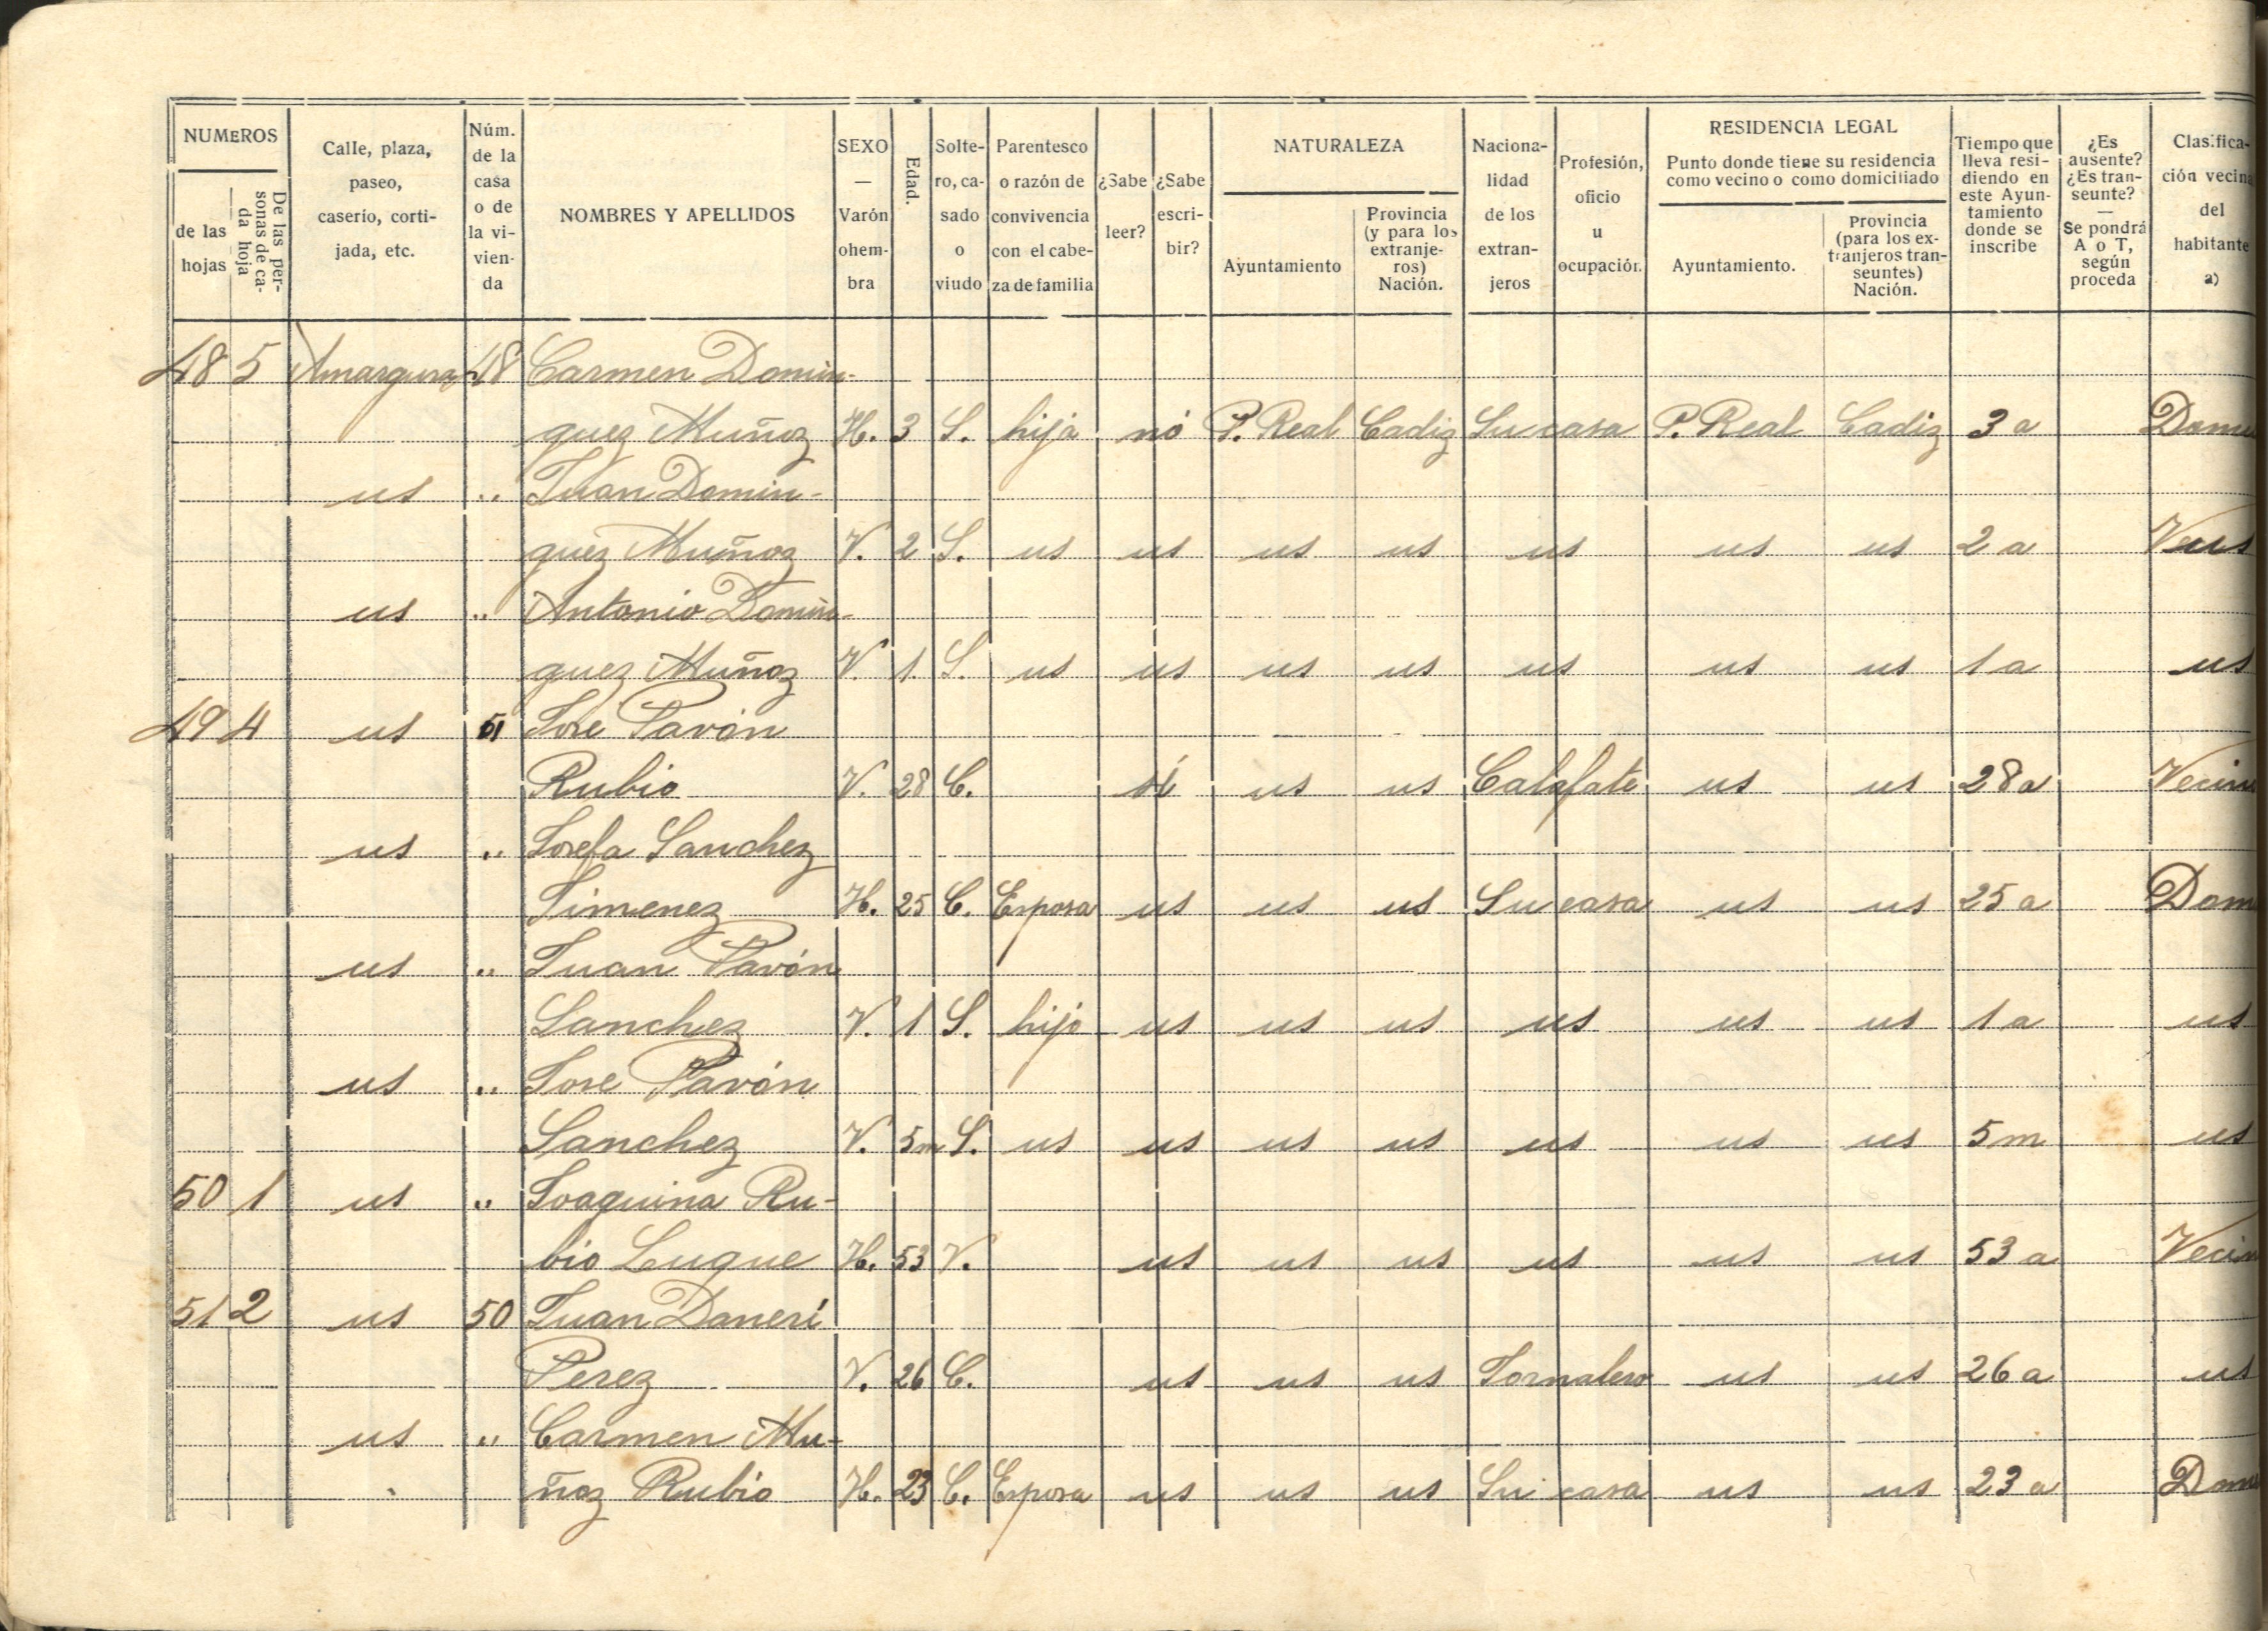 NUMEROS
de las hojas
De las personas de cada hoja
Calle, plaza, paseo, caserío, cortijada, etc.
Núm. de la casa o de la vivienda
NOMBRES Y APELLIDOS
SEXO — Varón ohembra
Edad.
Soltero, casado o viudo
Parentesco o razón de convivencia con el cabeza de familia
¿Sabe leer?
¿Sabe escribir?
NATURALEZA
Ayuntamiento
Provincia (y para los extranjeros) Nación.
Nacionalidad de los extranjeros
Profesión, oficio u ocupación.
RESIDENCIA LEGAL
Punto donde tiene su residencia como vecino o como domiciliado
Ayuntamiento.
Provincia (para los extranjeros transeuntes) Nación.
Tiempo que lleva residiendo en este Ayuntamiento donde se inscribe
¿Es ausente? ¿Es transeunte? — Se pondrá A o T, según proceda
Clasificación vecina del habitante a)
48 5 Amargura 48 Carmen Domin-
guez Muñoz H. 3 S. hija nó P. Real Cadiz Su casa P. Real Cadiz 3 a
us " Juan Domin-
guez Muñoz V. 2 S. us us us us us us us 2 a
us " Antonio Domin-
guez Muñoz V. 1. S. us us us us us us us 1 a us
49 4 us 51 Jose Pavón
Rubio V. 28 C. sí us us Calafate us us 28 a Vecin
us " Josefa Sanchez
Jimenez H. 25 C. Esposa us us us Su casa us us 25 a Dom
us " Juan Pavón
Sanchez V. 1 S. hijo us us us us us us 1 a us
us " Jose Pavón
Sanchez V. 5m S. us us us us us us us 5 m us
50 1 us " Joaquina Ru-
bio Luque H. 53 V. us us us us us us 53 a Vecin
51 2 us 50 Juan Danerí
Perez V. 26 C. us us us Jornalero us us 26 a us
us " Carmen Mu-
ñoz Rubio H. 23 C. Esposa us us us Su casa us us 23 a Dom